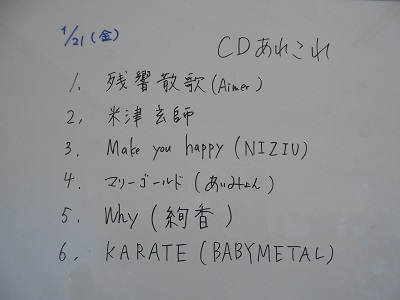 1/21(金)
CDあれこれ
1. 残響散歌(Aimer)
2. 米津玄師
3. Make you happy (NIZIU)
4. マリーゴールド(あいみょん)
5. Why (絢香)
6. KARATE (BABYMETAL)